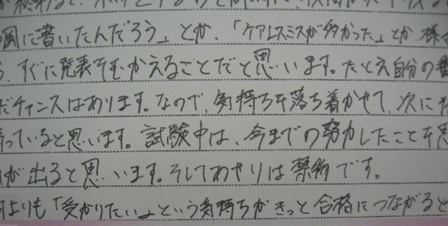 風に書いたんだろう」とか、「ケアレスミスが多かった」とか、
、すぐに発表をむかえることだと思います。たとえ自分の
だチャンスはあります。なので、気持ちを落ち着かせて、次に
っていると思います。試験中は、今までの努力したことを
が出ると思います。そしてあせりは禁物です。
よりも「受かりたい」という気持ちがきっと合格につながると